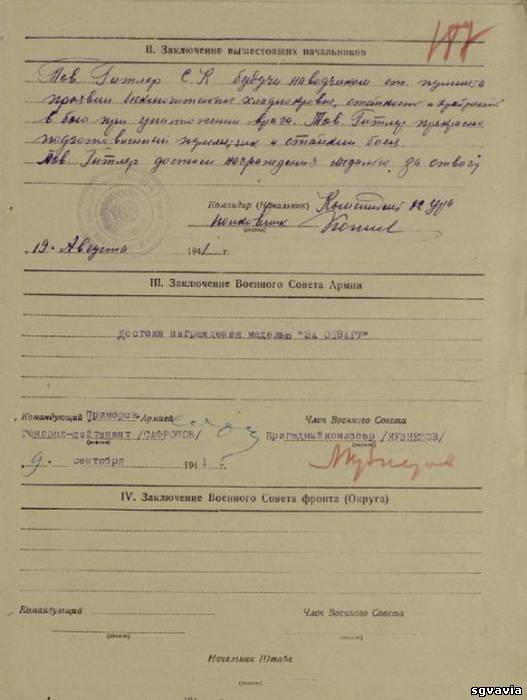 II. Заключение вышестоящих начальников
Тов. Гитлер С.К будучи наводчиком ст. пулемета
проявил исключительное хладнокровие, стойкость и храбрость
в бою при уничтожении врага. Тов. Гитлер прекрасно
подготовленный пулеметчик и стойкий боец.
Тов. Гитлер достоин награждения медалью за отвагу
Командир (Начальник) Комендант ура
полковник
(подпись)
19. Августа 1941 г.
III. Заключение Военного Совета Армии
Достоин награждения медалью "ЗА ОТВАГУ"
Командующий Приморск. Армией
Член Военного Совета
Генерал-лейтенант /САФРОНОВ/
Бригадный комиссар /КУЗНЕЦОВ/
9 сентября 1941 г.
IV. Заключение Военного Совета фронта (Округа)
Командующий
Член Военного Совета
(подпись)
(подпись)
Начальник Штаба
(подпись)
sgvavia